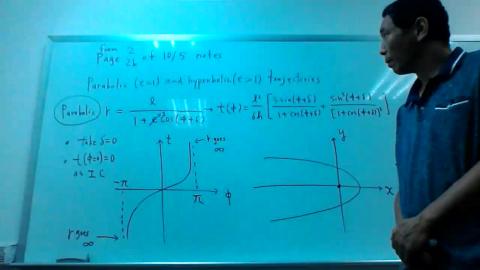 from 2
Page 2b of 10/5 notes
Parabolic (e=1) and hyperbolic (e>1) Trajectories
Parabolic r = ℓ / (1 + cos(ϕ+δ)) → t(ϕ) = [3 sin(ϕ+δ) / (1+cos(ϕ+δ)) + sin³(ϕ+δ) / [1+cos(ϕ+δ)]³]
• take δ=0
• t(ϕ=0)=0
as I C
t
r goes ∞
-π
π
ϕ
r goes ∞
y
x